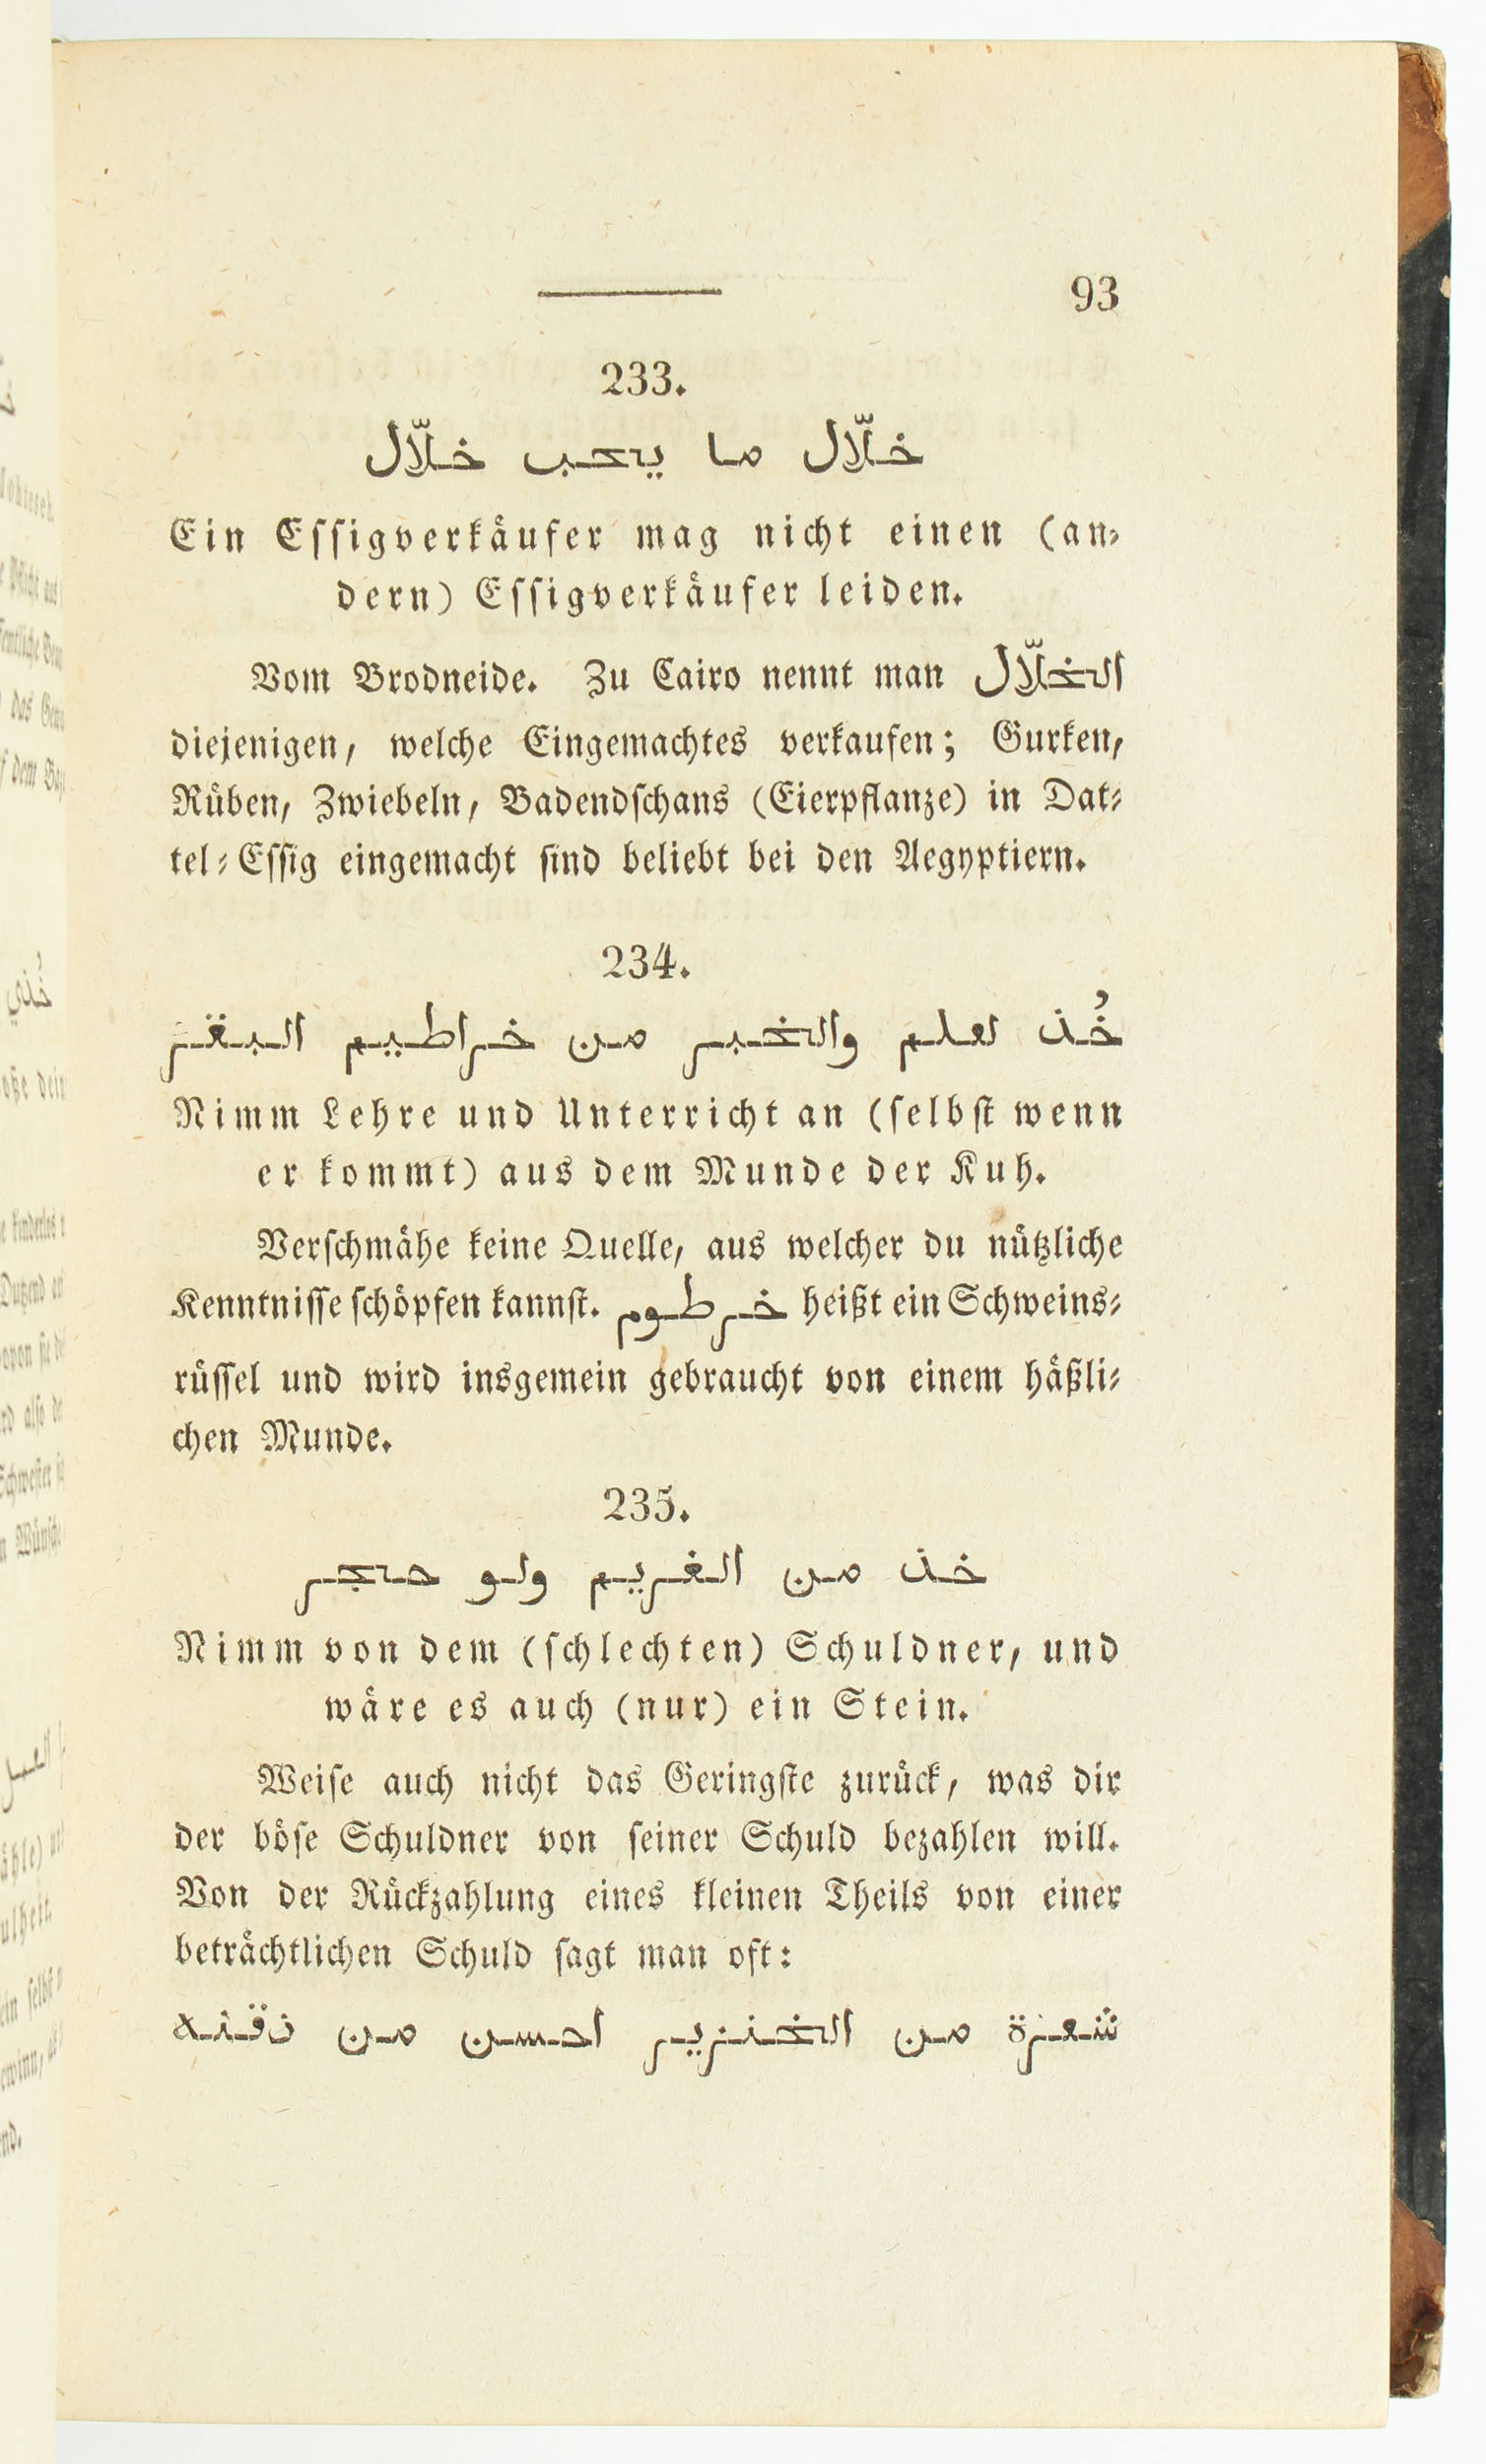 93
233.
خلّال ما يحب خلّال
Ein Essigverkäufer mag nicht einen (an-
dern) Essigverkäufer leiden.
Vom Brodneide. Zu Cairo nennt man الخلّال
diejenigen, welche Eingemachtes verkaufen; Gurken,
Rüben, Zwiebeln, Badendschans (Eierpflanze) in Dat-
tel-Essig eingemacht sind beliebt bei den Aegyptiern.
234.
خُذ لعلم والخبر من خراطيم البقر
Nimm Lehre und Unterricht an (selbst wenn
er kommt) aus dem Munde der Kuh.
Verschmähe keine Quelle, aus welcher du nützliche
Kenntnisse schöpfen kannst. خرطوم heißt ein Schweins-
rüssel und wird insgemein gebraucht von einem häßli-
chen Munde.
235.
خذ من الغريم ولو حجر
Nimm von dem (schlechten) Schuldner, und
wäre es auch (nur) ein Stein.
Weise auch nicht das Geringste zurück, was dir
der böse Schuldner von seiner Schuld bezahlen will.
Von der Rückzahlung eines kleinen Theils von einer
beträchtlichen Schuld sagt man oft:
شعرة من الخنزير احسن من ذقنه